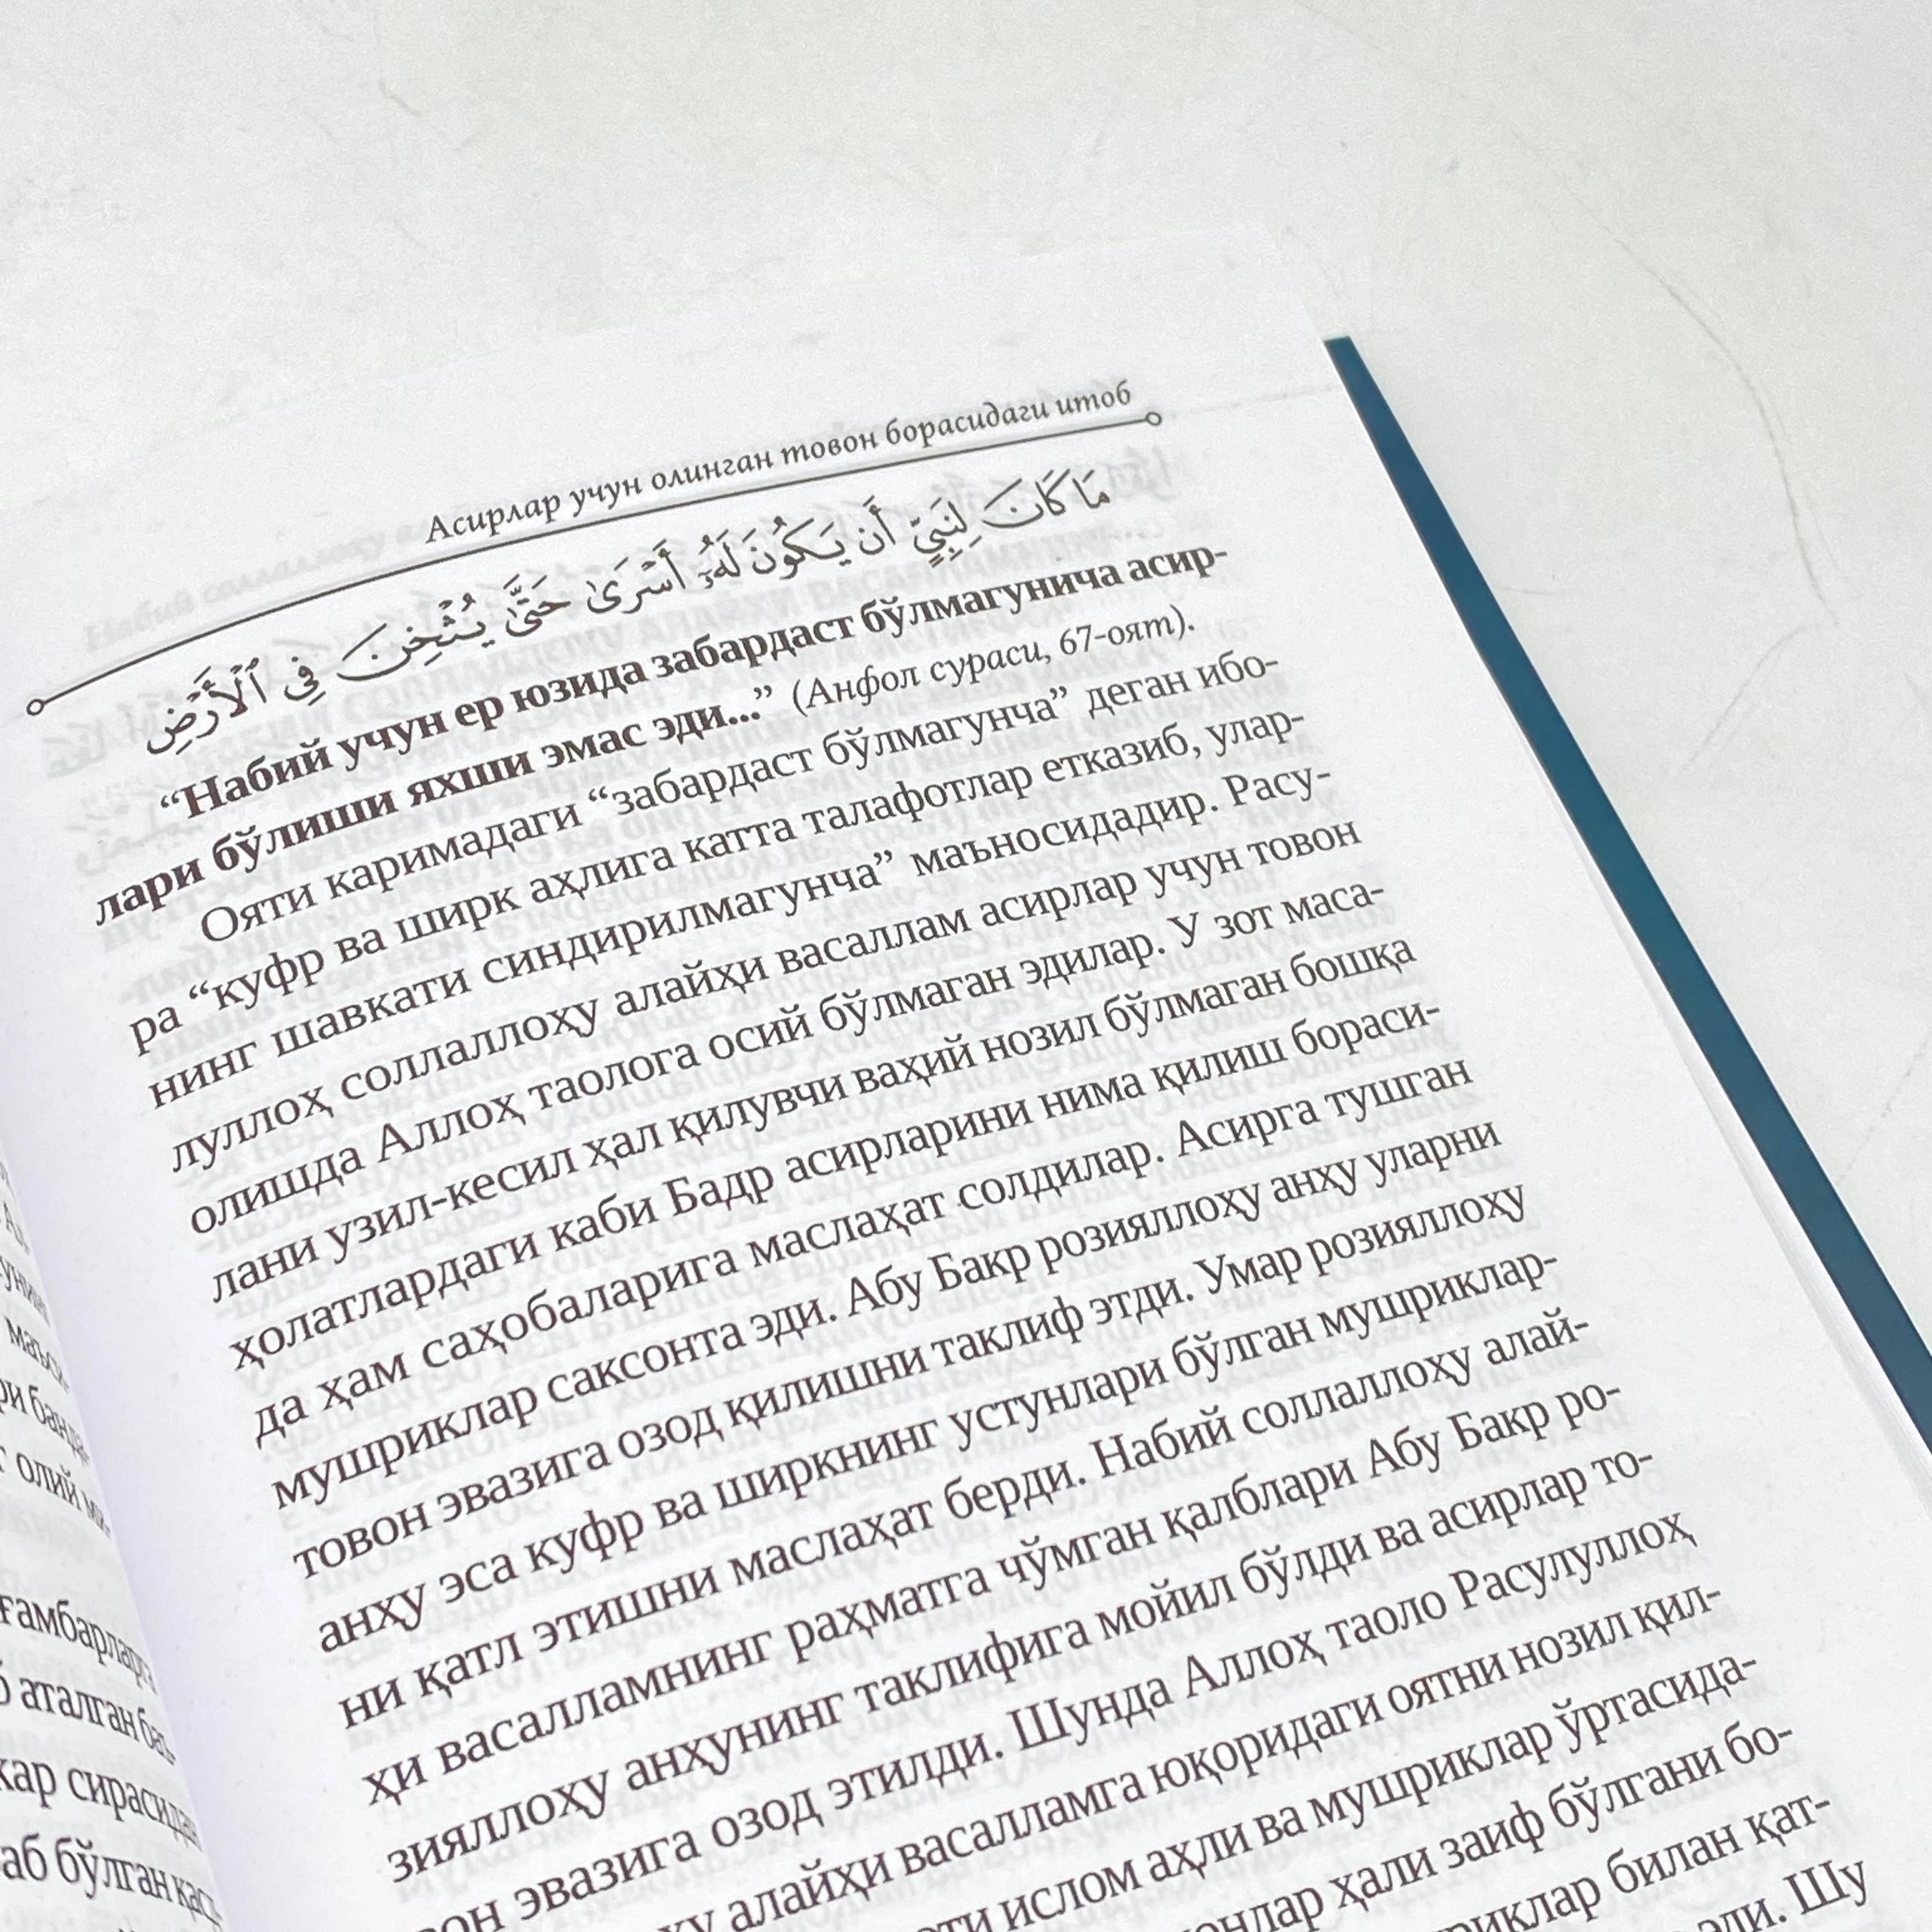 Асирлар учун олинган товон борасидаги итоб
مَا كَانَ لِنَبِيٍّ أَن يَكُونَ لَهُۥٓ أَسْرَىٰ حَتَّىٰ يُثْخِنَ فِى ٱلْأَرْضِ
“Набий учун ер юзида забардаст бўлмагунича асир-
лари бўлиши яхши эмас эди...” (Анфол сураси, 67-оят).
Ояти каримадаги “забардаст бўлмагунча” деган ибо-
ра “куфр ва ширк аҳлига катта талафотлар етказиб, улар-
нинг шавкати синдирилмагунча” маъносидадир. Расу-
луллоҳ соллаллоҳу алайҳи васаллам асирлар учун товон
олишда Аллоҳ таолога осий бўлмаган эдилар. У зот маса-
лани узил-кесил ҳал қилувчи ваҳий нозил бўлмаган бошқа
ҳолатлардаги каби Бадр асирларини нима қилиш бораси-
да ҳам саҳобаларига маслаҳат солдилар. Асирга тушган
мушриклар саксонта эди. Абу Бакр розияллоҳу анҳу уларни
товон эвазига озод қилишни таклиф этди. Умар розияллоҳу
анҳу эса куфр ва ширкнинг устунлари бўлган мушриклар-
ни қатл этишни маслаҳат берди. Набий соллаллоҳу алай-
ҳи васалламнинг раҳматга чўмган қалблари Абу Бакр ро-
зияллоҳу анҳунинг таклифига мойил бўлди ва асирлар то-
вон эвазига озод этилди. Шунда Аллоҳ таоло Расулуллоҳ
алайҳи васалламга юқоридаги оятни нозил қил-
ислом аҳли ва мушриклар ўртасида-
ҳали заиф бўлгани бо-
билан қат-
эди. Шу
ғамбарларга
аталган
сирасидан
бўлган
олий